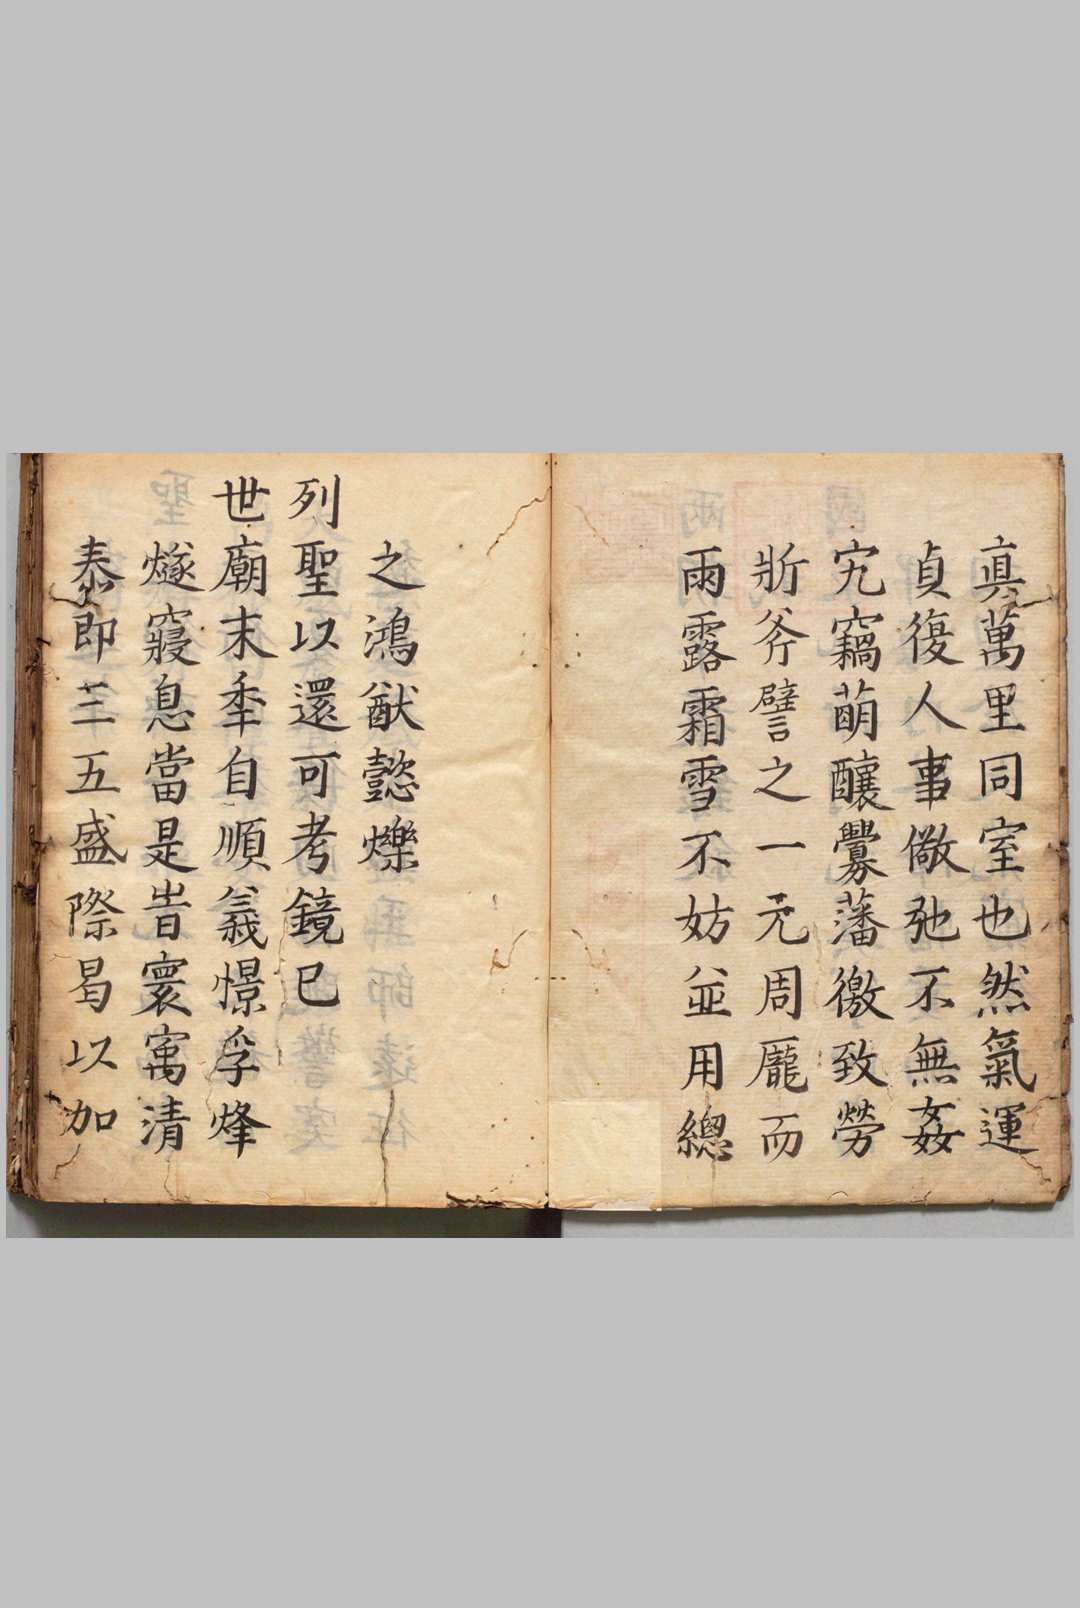 真萬里同室也然氣運
貞復人事儆弛不無姦
宄竊萌釀釁藩徼致勞
斨斧譬之一元周龎而
雨露霜雪不妨並用總
之鴻猷懿爍
列聖以還可考鏡已
世廟末年自順義憬孚烽
燧寢息當是時寰㝢清
泰即三五盛際曷以加